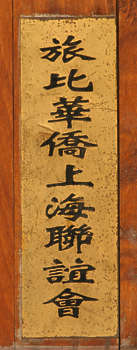 旅比華僑上海聯誼會